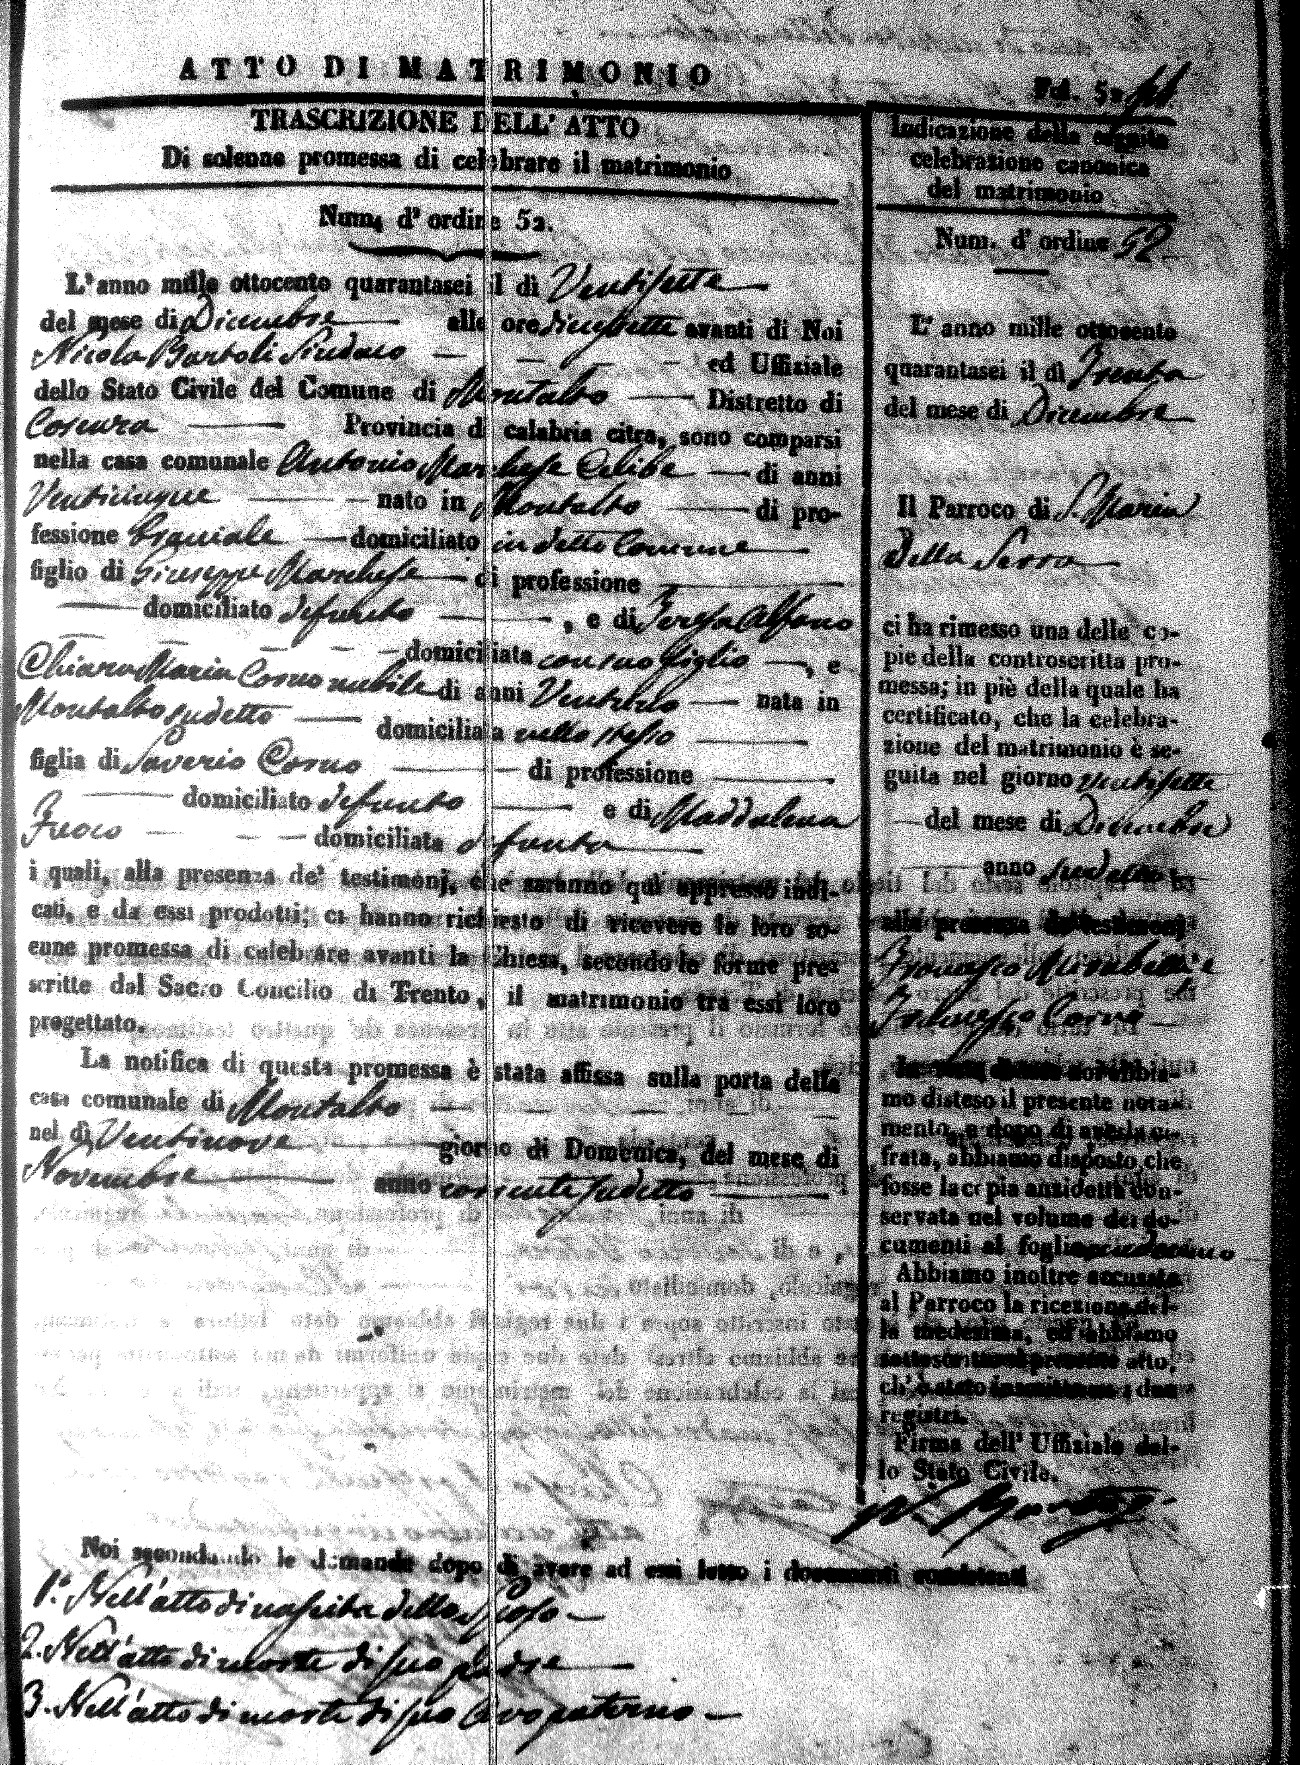 ATTO DI MATRIMONIO
Fol. 52
TRASCRIZIONE DELL' ATTO
Di solenne promessa di celebrare il matrimonio
Num. d' ordine 52.
L'anno mille ottocento quarantasei il dì Ventisette
del mese di Dicembre alle ore diecisette avanti di Noi
Nicola Bartoli Sindaco ed Uffiziale
dello Stato Civile del Comune di Montalto Distretto di
Cosenza Provincia di calabria citra, sono comparsi
nella casa comunale Antonio Marchese Celibe di anni
Venticinque nato in Montalto di pro-
fessione Braciale domiciliato in detto Comune
figlio di Giuseppe Marchese di professione
domiciliato defunto , e di Teresa Alfano
domiciliata con suo figlio , e
Chiara Maria Corno nubile di anni nata in
Montalto sudetto domiciliata nello stesso
figlia di Saverio Corno di professione
domiciliato defunto e di Maddalena
Fuoco domiciliata defunta
i quali, alla presenza de' testimonj, che saranno quì appresso indi-
cati, e da essi prodotti; ci hanno richiesto di ricevere la loro so-
enne promessa di celebrare avanti la Chiesa, secondo le forme pre-
scritte dal Sacro Concilio di Trento, il matrimonio tra essi loro
progettato.
La notifica di questa promessa è stata affissa sulla porta della
casa comunale di Montalto
nel dì Ventinove giorno di Domenica, del mese di
Novembre anno corrente sudetto
Indicazione della seguita
celebrazione canonica
del matrimonio
Num. d' ordine 52
L' anno mille ottocento
quarantasei il dì Trenta
del mese di Dicembre
Il Parroco di S. Maria
della Serra
ci ha rimesso una delle co-
pie della controscritta pro-
messa; in piè della quale ha
certificato, che la celebra-
zione del matrimonio è se-
guita nel giorno ventisette
del mese di Dicembre
anno sudetto
alla presenza de' testimonj
Francesco Mirabelli e
Francesco Corno
In abbia-
mo disteso il presente nota-
mento, e dopo di averla ci-
frata, abbiamo disposto che
fosse la copia anzidetta con-
servata nel volume dei do-
cumenti al foglio
Abbiamo inoltre accusata
al Parroco la ricezione del-
la medesima, ed abbiamo
sottoscritto il presente atto,
ch' è stato inscritto su i due
registri.
Firma dell' Uffiziale del-
lo Stato Civile.
N. Bartoli
Noi secondando le domande dopo di avere ad essi letto i documenti consistenti
1.° Nell'atto di nascita dello Sposo
2. Nell'atto di morte di suo padre
3. Nell'atto di morte di suo Avo paterno